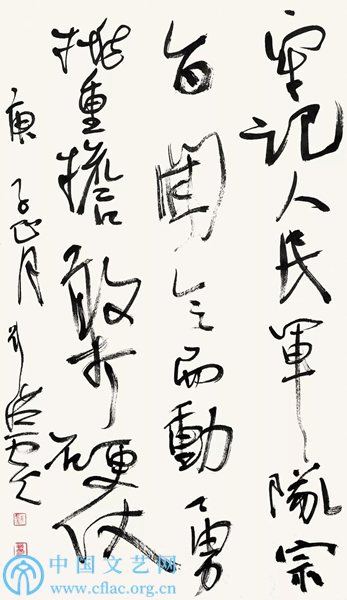 牢记人民軍隊宗
旨闻令而動勇
挑重擔敢打硬仗
庚子正月
中国文艺网
www.cflac.org.cn